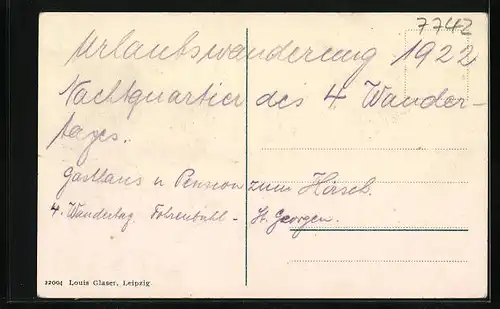 7742
Urlaubswanderung 1922
Nachtquartier des 4. Wander-
tages.
Gasthaus u Pension zum Hirsch.
4. Wandertag. Fohrenbühl - St. Georgen.
22094 Louis Glaser, Leipzig